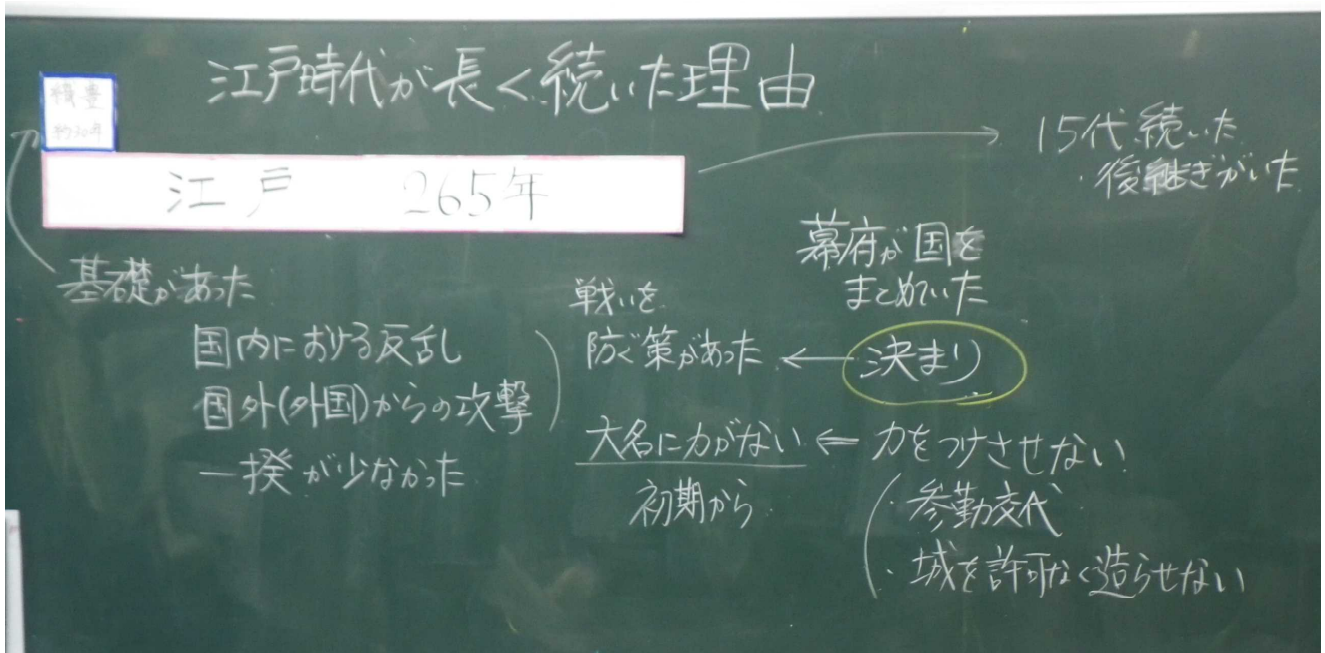 江戸時代が長く続いた理由
織豊
約30年
江戸 265年
15代続いた
・後継ぎがいた
基礎があった
国内における反乱
国外(外国)からの攻撃
一揆が少なかった
戦いを
防ぐ策があった
幕府が国を
まとめていた
← 決まり
大名に力がない ← 力をつけさせない
初期から
・参勤交代
・城を許可なく造らせない